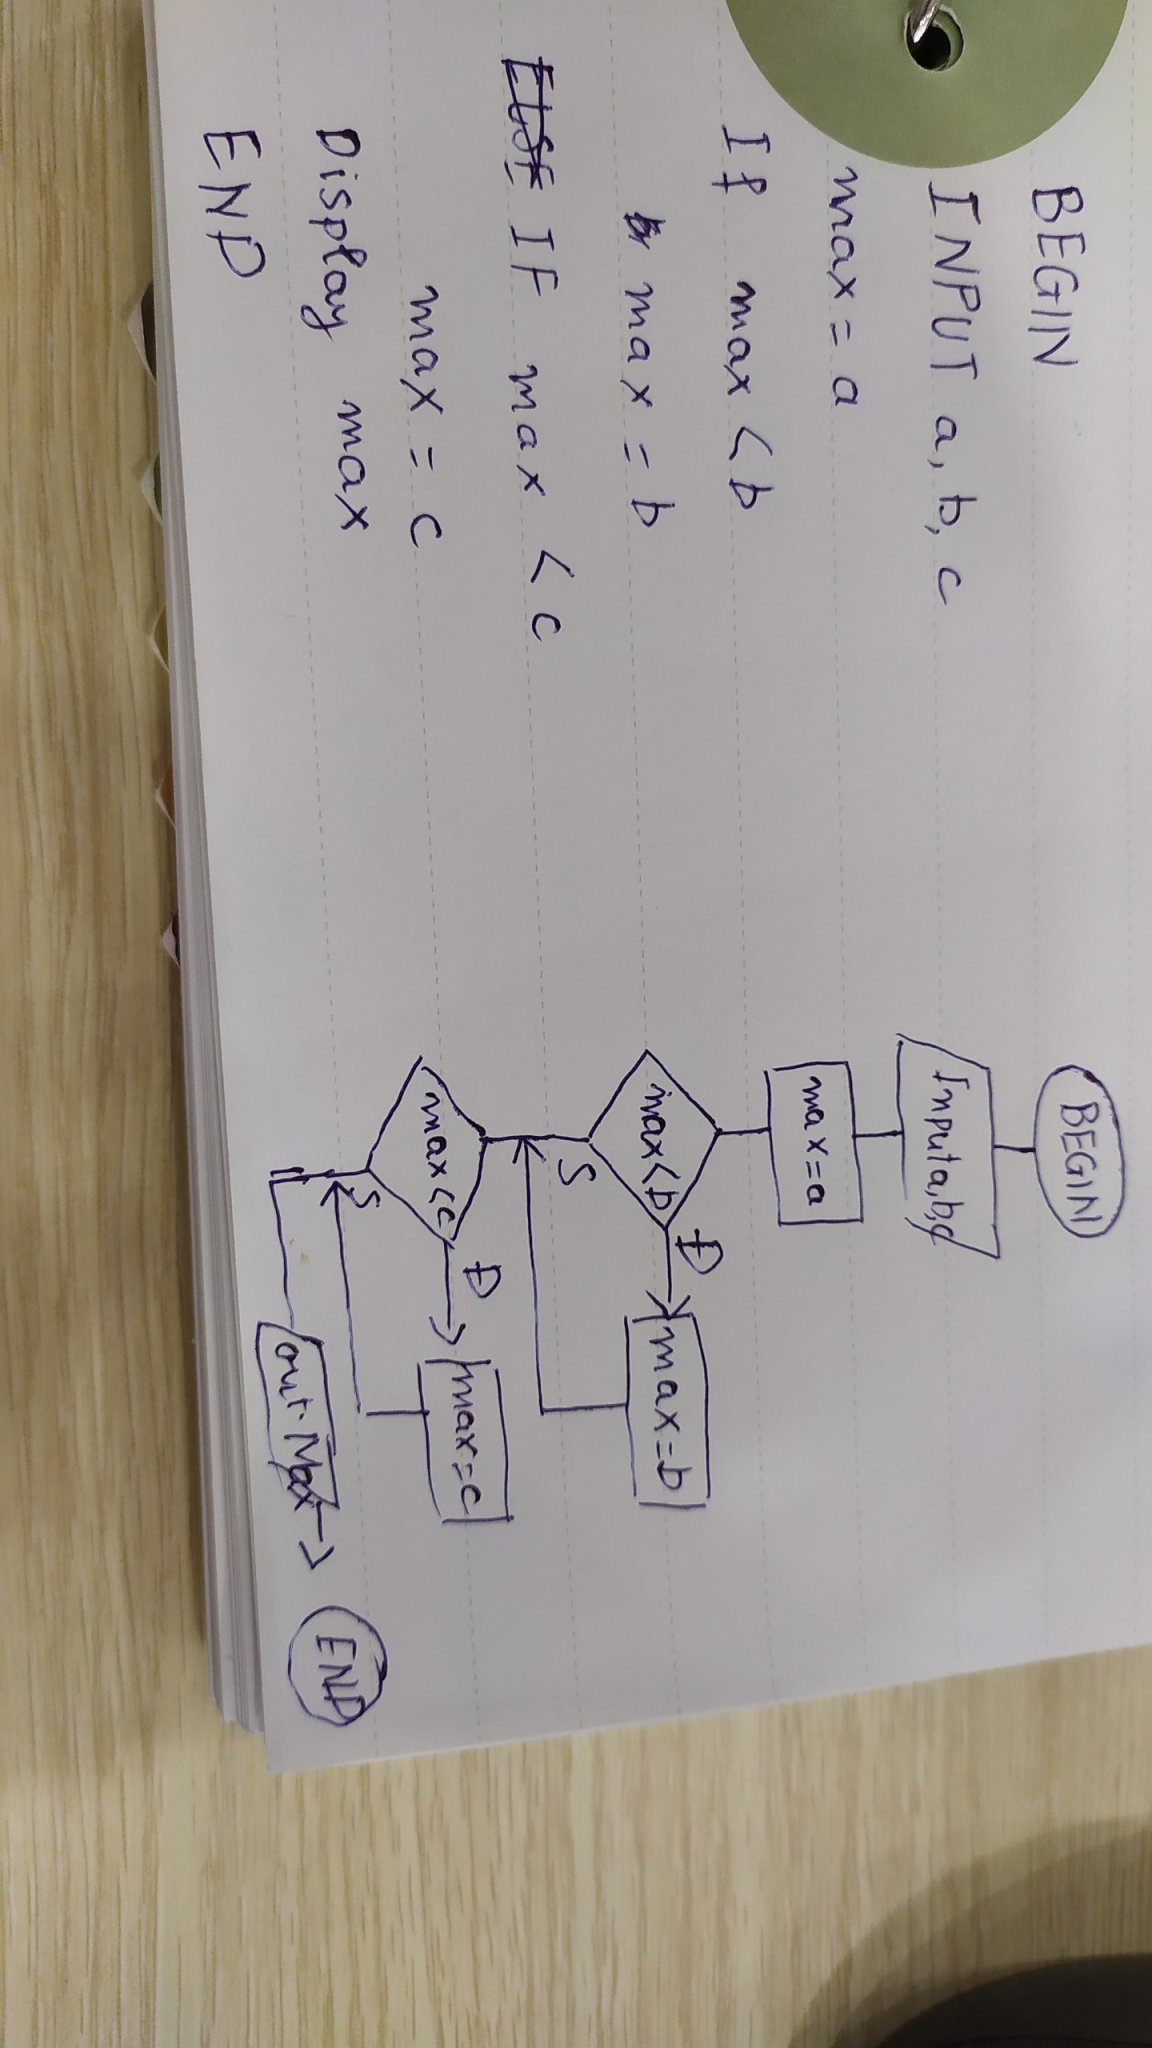 BEGIN
INPUT a, b, c
max = a
If max < b
max = b
ELSE IF max < c
max = c
Display max
END
BEGIN
Input a,b,c
max=a
max<b
Đ
max=b
S
max<c
Đ
max=c
S
out Max
END